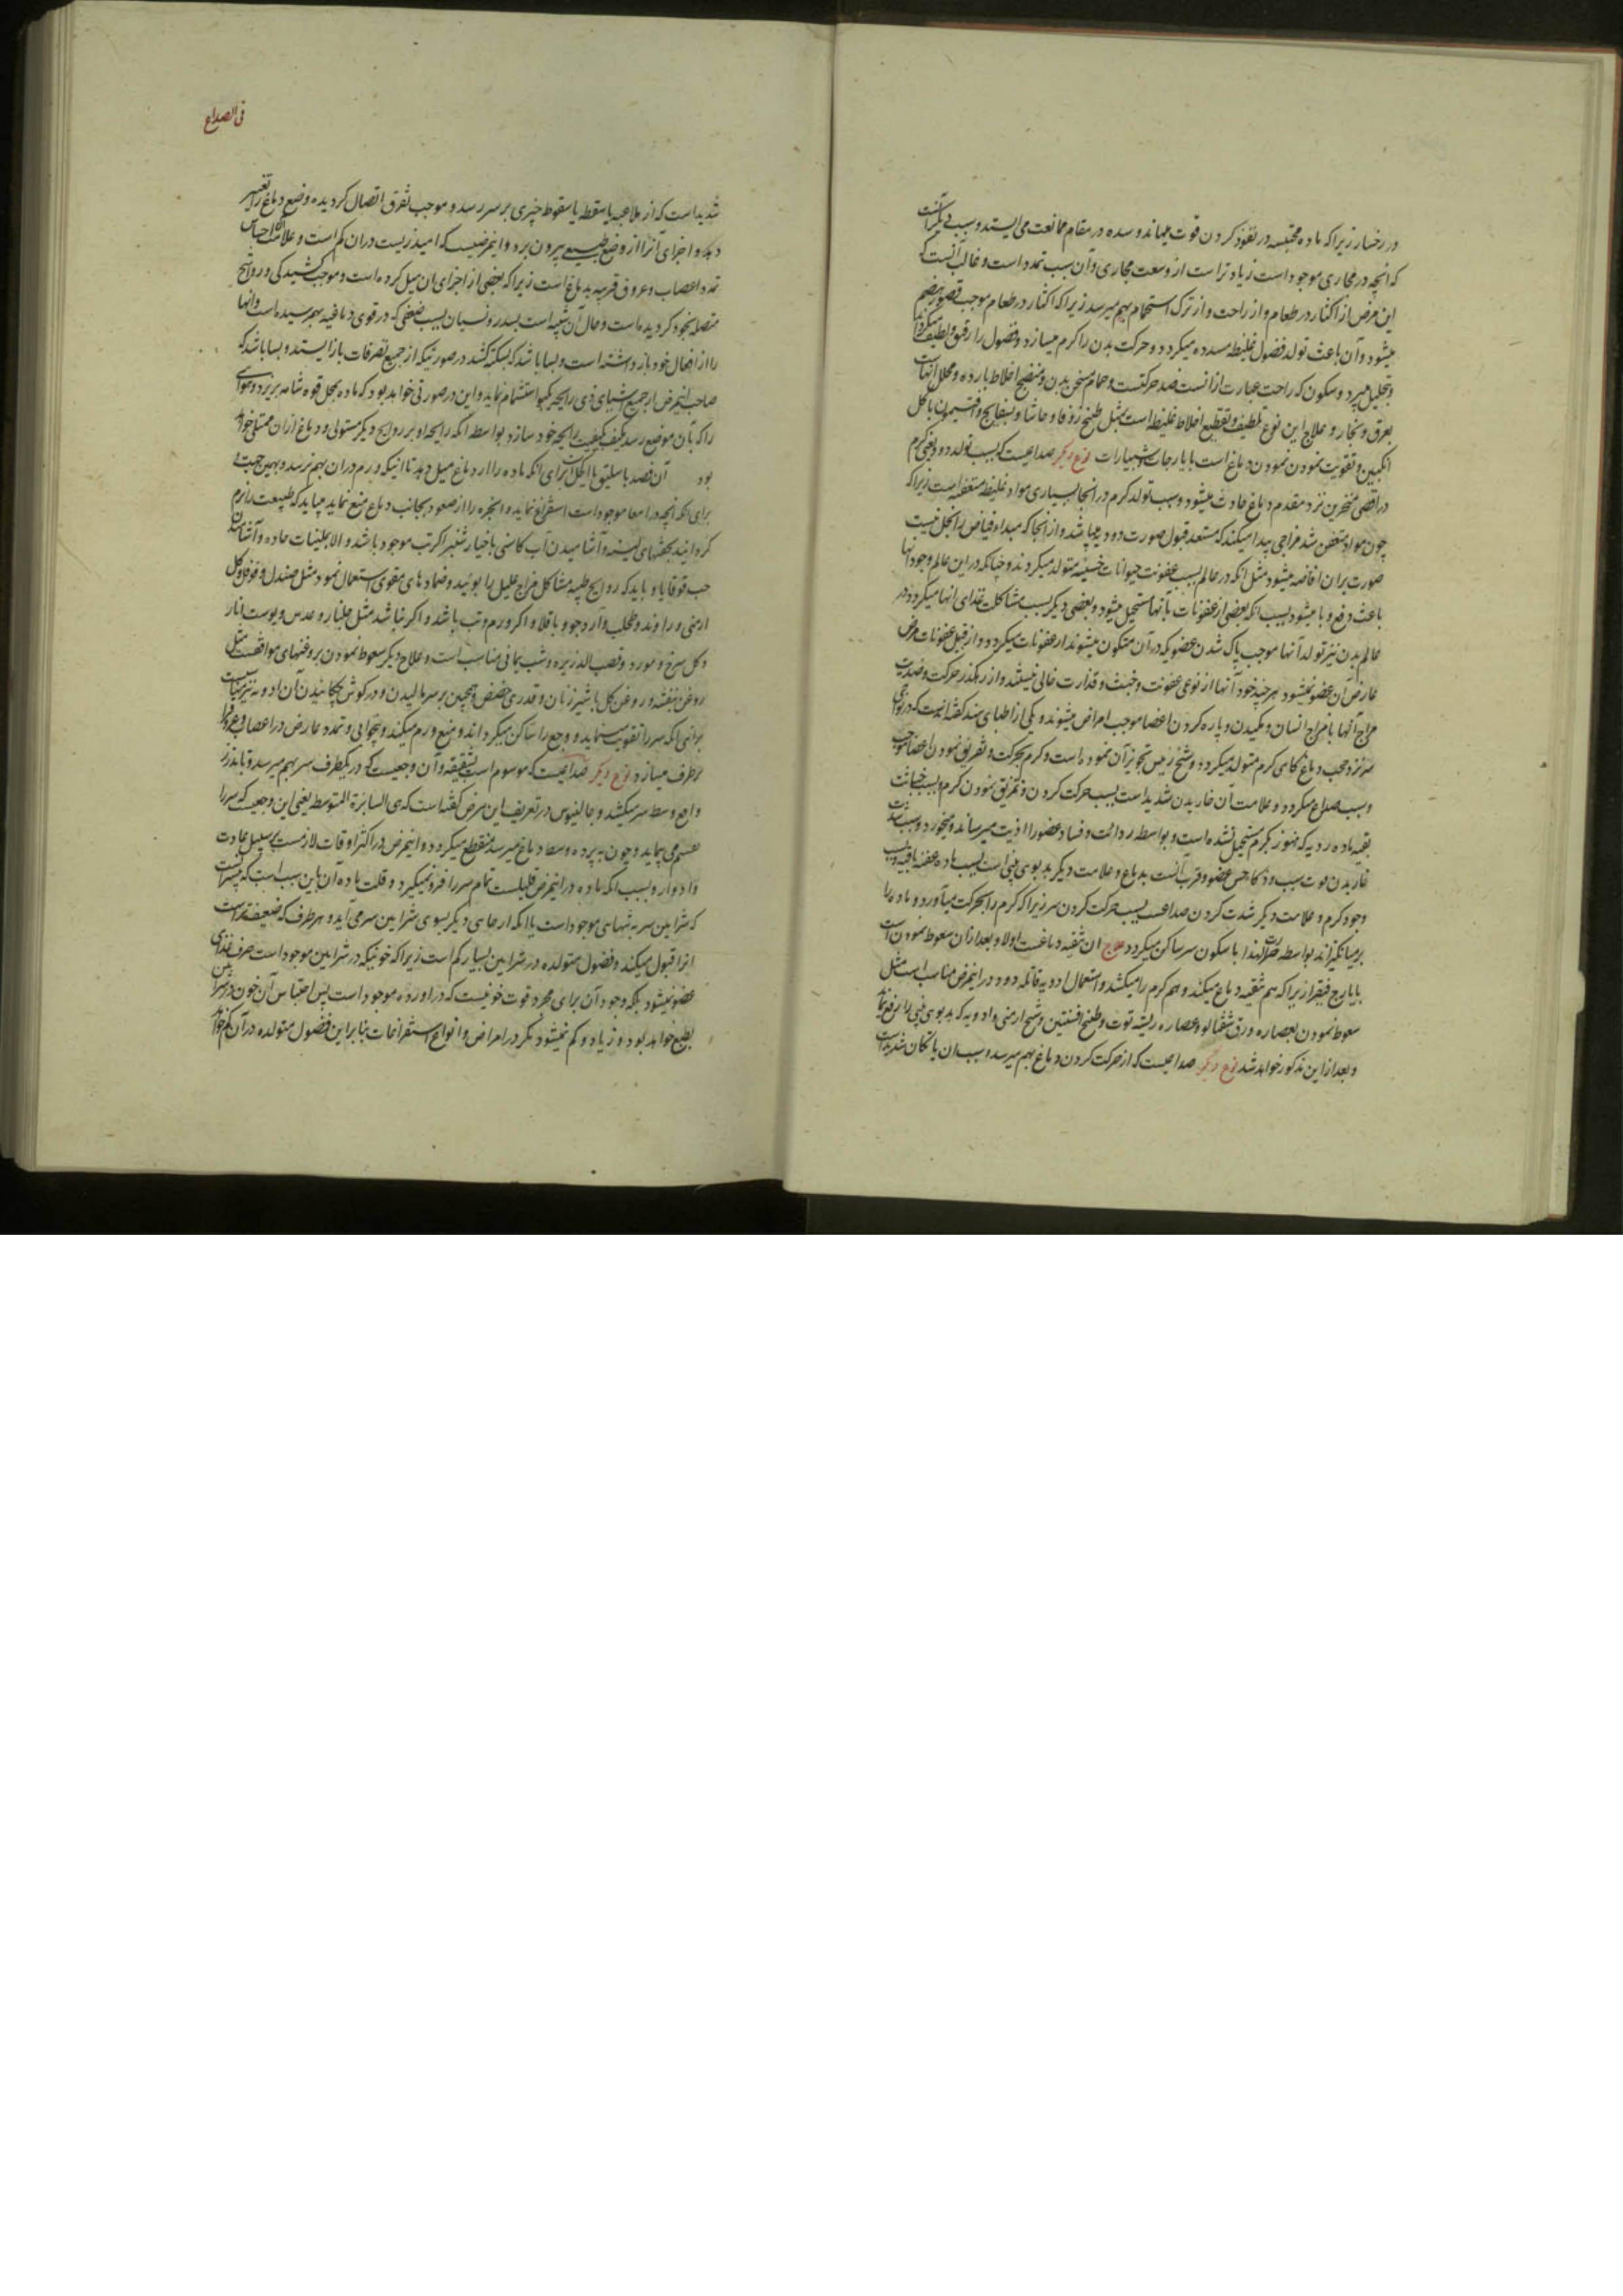 در رخسار زیرا که ماده محتبسه در نفوذ کردن قوت میماند و سده در مقام ممانعت می ایستد و سبب دیگر آنست
که انچه در مجاری موجود است زیادتر است از وسعت مجاری و آن سبب تمدد است و غالب آنست که
این مرض از اکثار در طعام و از راحت و از ترک استحمام بهم میرسد زیرا که اکثار در طعام موجب قصور هضم
میشود و آن باعث تولد فضول غلیظه مسدده میگردد و حرکت بدن را گرم میسازد و فضول را رقیق و لطیف میگرداند
و بتحلیل میبرد و سکون که راحت عبارت از آنست ضد حرکتست و حمام مسخن بدن و منضج اخلاط بارده و محلل آنهاست
بعرق و بخار و علاج این نوع تلطیف و تقطیع اخلاط غلیظه است بمثل طبیخ زوفا و حاشا و بسفایج و افتیمون با گل
انگبین و تقویت نمودن دماغ است بایارجات و شبیارات نوع دیگر صداعیست که بسبب تولد دود یعنی کرم
در اقصی منخرین نزد مقدم دماغ حادث میشود و سبب تولد کرم در انجا بسیاری مواد غلیظه متعفنه است زیرا که
چون مواد متعفن شد مزاجی پیدا میکند که مستعد قبول صورت دودیه میباشد و از انجا که مبداء فیاض را بخل نیست
صورت بران افاضه میشود مثل انکه در عالم بسبب عفونت حیوانات خسیسه متولد میگردند و چنانکه در این عالم وجود آنها
باعث دفع وبا میشود بسبب انکه بعضی از عفونات بآنها مستحیل میشود و بعضی دیگر بسبب مشاکلت غذای انها میگردد در
عالم بدن نیز تولد آنها موجب پاک شدن عضویکه در آن متکون میشوند از عفونات میگردد و از قبل عفونات مرض
عارض آن عضو نمیشود هر چند خود آنها از نوعی عفونت و خبث و قذارت خالی نیستند و از رهگذر حرکت و ضدیت
مزاج آنها بامزاج انسان و مکیدن و پاره کردن اعضا موجب امراض میشوند و یکی از اطبای هند گفته است که در نواحی
سر نزد حجب دماغ گاهی کرم متولد میگردد و شیخ رئیس تجویز آن نموده است و کرم بحرکت و تفریق نمودن اعضا موجب
و سبب صداع میگردد و علامت آن خاریدن شدید است بسبب حرکت کردن و تمزیق نمودن کرم و بسبب خباثت
بقیه ماده ردیه که هنوز بکرم مستحیل نشده است و بواسطه ردائت و فساد عضو را اذیت میرساند و میخورد و سبب شدت
خاریدن قوت سبب و ذکاء حس عضو و قرب آنست بدماغ و علامت دیگر بدبوی بینی است بسبب ماده عفنه باقیه و بسبب
وجود کرم و علامت دیگر شدت کردن صداعست بسبب حرکت کردن سر زیرا که کرم را بحرکت میآورد و ماده را
برمیانگیزاند بواسطه حرارت لهذا با سکون سر ساکن میگردد علاج آن تنقیه دماغست اولا و بعد ازان سعوط نمودن است
بایارج فیقرا زیرا که هم تنقیه دماغ میکند و هم کرم را میکشد و استعمال ادویه قاتله دود در اینمرض مناسب است مثل
سعوط نمودن بعصاره ورق شفتالو و عصاره ریشه توت و طبیخ افسنتین و شیح ارمنی و ادویه که بدبوی بینی را رفع نماید
و بعد از این مذکور خواهد شد نوع دیگر صداعیست که از حرکت کردن دماغ بهم میرسد و سبب ان یا تکان شدید است
فی الصداع
شدید است که از ملاعبه یا سقطه یا سقوط چیزی بر سر رسد و موجب تفرق اتصال گردیده وضع دماغ را تغییر
دهد و اجزای آنرا از وضع طبیعی بیرون برد و اینمرضیست که امید زیست دران کم است و علامت آن احساس
تمدد اعصاب و عروق قریبه بدماغ است زیرا که بعضی از اجزای ان میل کرده است و موجب کشیدگی در روابح
متصله بخود گردیده است و حال آن شبیه است بسدر و نسیان بسبب ضعفی که در قوی دماغیه بهم رسیده است و انها
را از افعال خود بازداشته است و بسا باشد که بسکته کشد در صورتیکه از جمیع تصرفات باز ایستد و بسا باشد که
صاحب اینمرض از جمیع شیهای ذی رایحه بکبو استشمام نماید و این در صورتی خواهد بود که ماده بمحل قوه شامه بریزد و هوائی
را که بآن موضع رسد مکیف بکیفیت رایحه خود سازد بواسطه انکه رایحه او بر روایح دیگر مستولی و دماغ ازان ممتلی خواهد
بود آن فصد باسلیق یا اکحل برای انکه ماده را از دماغ میل دهد تا انیکه ورم دران بهم نرسد و بهمین جهت
برای انکه انچه در امعا موجود است استفراغ نماید و ابخره را از صعود بجانب دماغ منع نماید میباید که طبیعت را نرم
گردانید بحقنهای لینه و آشامیدن آب کاسنی باخیار شنبر اگر تب موجود باشد و الا بملینات حاده و آشامیدن
حب قوقایا و باید که روایح طیبه مشاکل مزاج علیل را بوئید و ضمادهای مقوی استعمال نمود مثل صندل و فوفل و گل
ارمنی و راوند و طحلب و آرد جو و باقلا اگر ورم و تب باشد و اگر نباشد مثل جلنار و عدس و پوست انار
و گل سرخ و مورد و قصب الذریره و شب یمانی مناسب است و علاج دیگر سعوط نمودن بروغنهای موافقست مثل
روغن بنفشه و روغن گل باشیر زنان و قدری حضض و همچنین بر سر مالیدن و در گوش چکانیدن آن ادویه نیز مناسبست
برای انکه سر را تقویت مینماید و وجع را ساکن میگرداند و منع ورم میکند و بیخوابی و تمدد عارض در اعصاب و عروق را
برطرف میسازد نوع دیگر صداعیست که موسوم است بشقیقه و آن وجعیست که در یکطرف سر بهم میرسد و تا بدرز
واقع وسط سر میکشد و جالینوس در تعریف این مرض گفته است که هی السایرة المتوسطه یعنی این وجعیست که سر را
بقسم می پیماید و چون به پرده وسط دماغ میرسد منقطع میگردد و اینمرض در اکثر اوقات لازمست بر سبیل عادت
و ادوار و بسبب انکه ماده در اینمرض قلیلست تمام سر را فرو نمیگیرد و قلت ماده آن باین سبب است که بیشتر آنست
که شرایین سر به تنهایی موجود است یا انکه از جای دیگر بسوی شرایین سر می آید و هر طرف که ضعیفتر است
انرا قبول میکند و فضول متولده در شرایین بسیار کم است زیرا که خونیکه در شرایین موجود است صرف غذای
عضو نمیشود بلکه وجود آن برای مجرد قوت خونیست که در اورده موجود است پس احتباس آن خون در شرایین
بطبع خواهد بود و زیاد و کم نمیشود مگر در امراض و انواع استفراغات بنابراین فضول متولده در آن کم خواهد